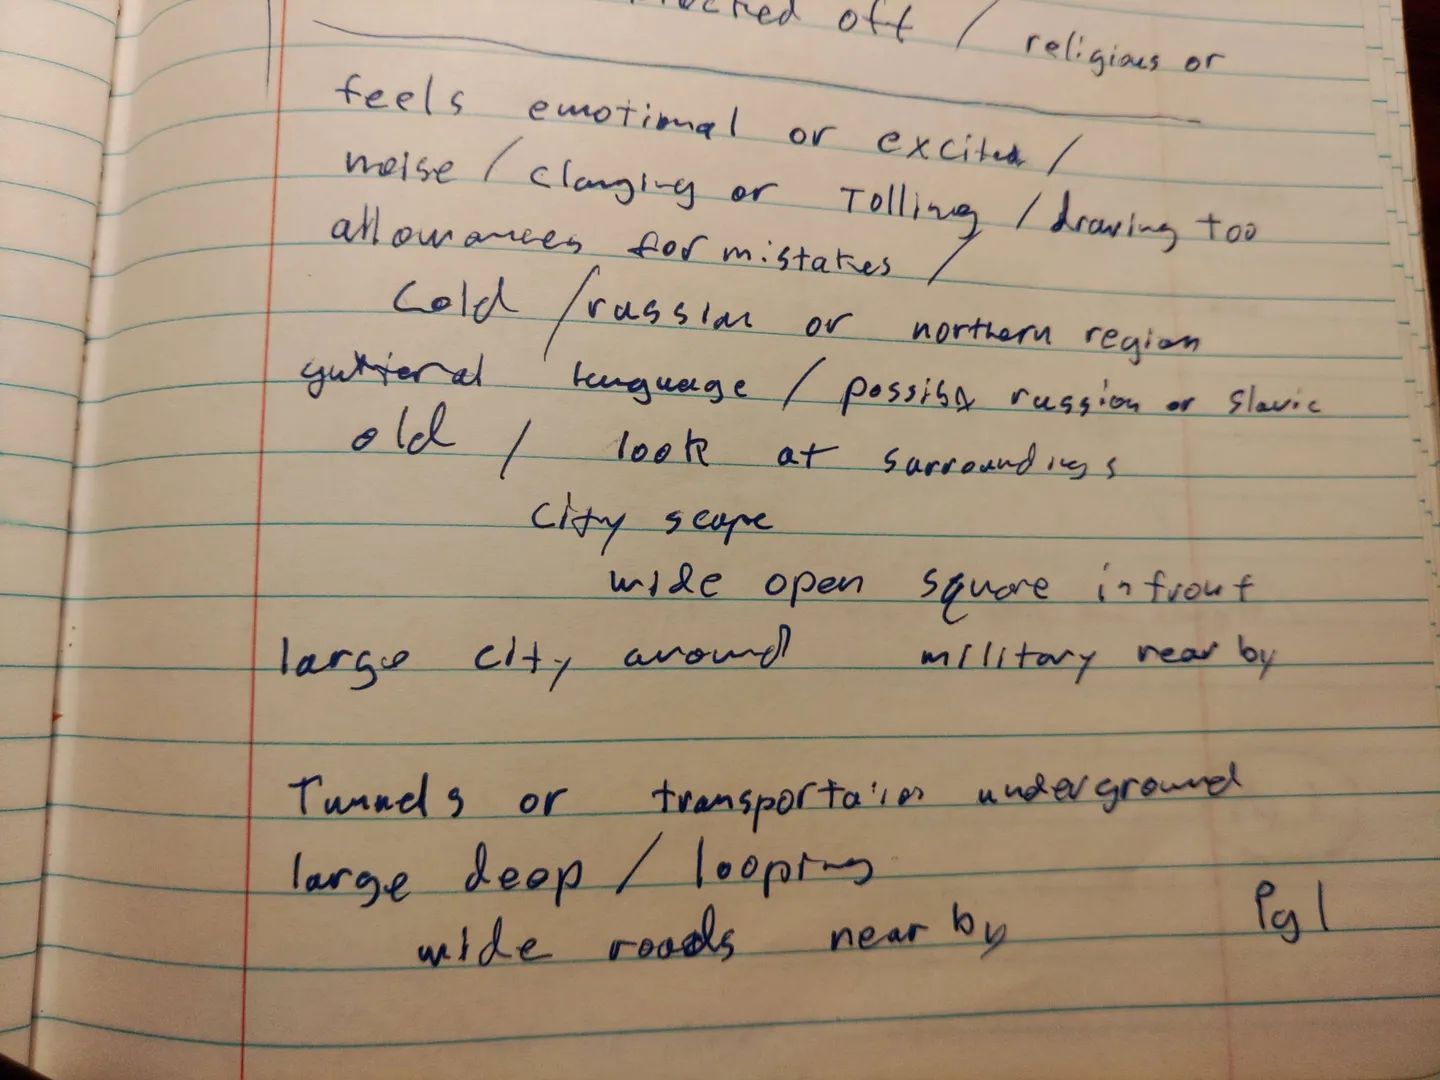 off / religious or
feels emotional or excited /
noise / clanging or Tolling / drawing too
allowances for mistakes /
Cold / russian or northern region
gutteral language / possibly russian or Slavic
old / look at surroundings
city scape
wide open square infront
large city around military near by
Tunnels or transportaion underground
large deep / looping
wide roads near by
Pg 1